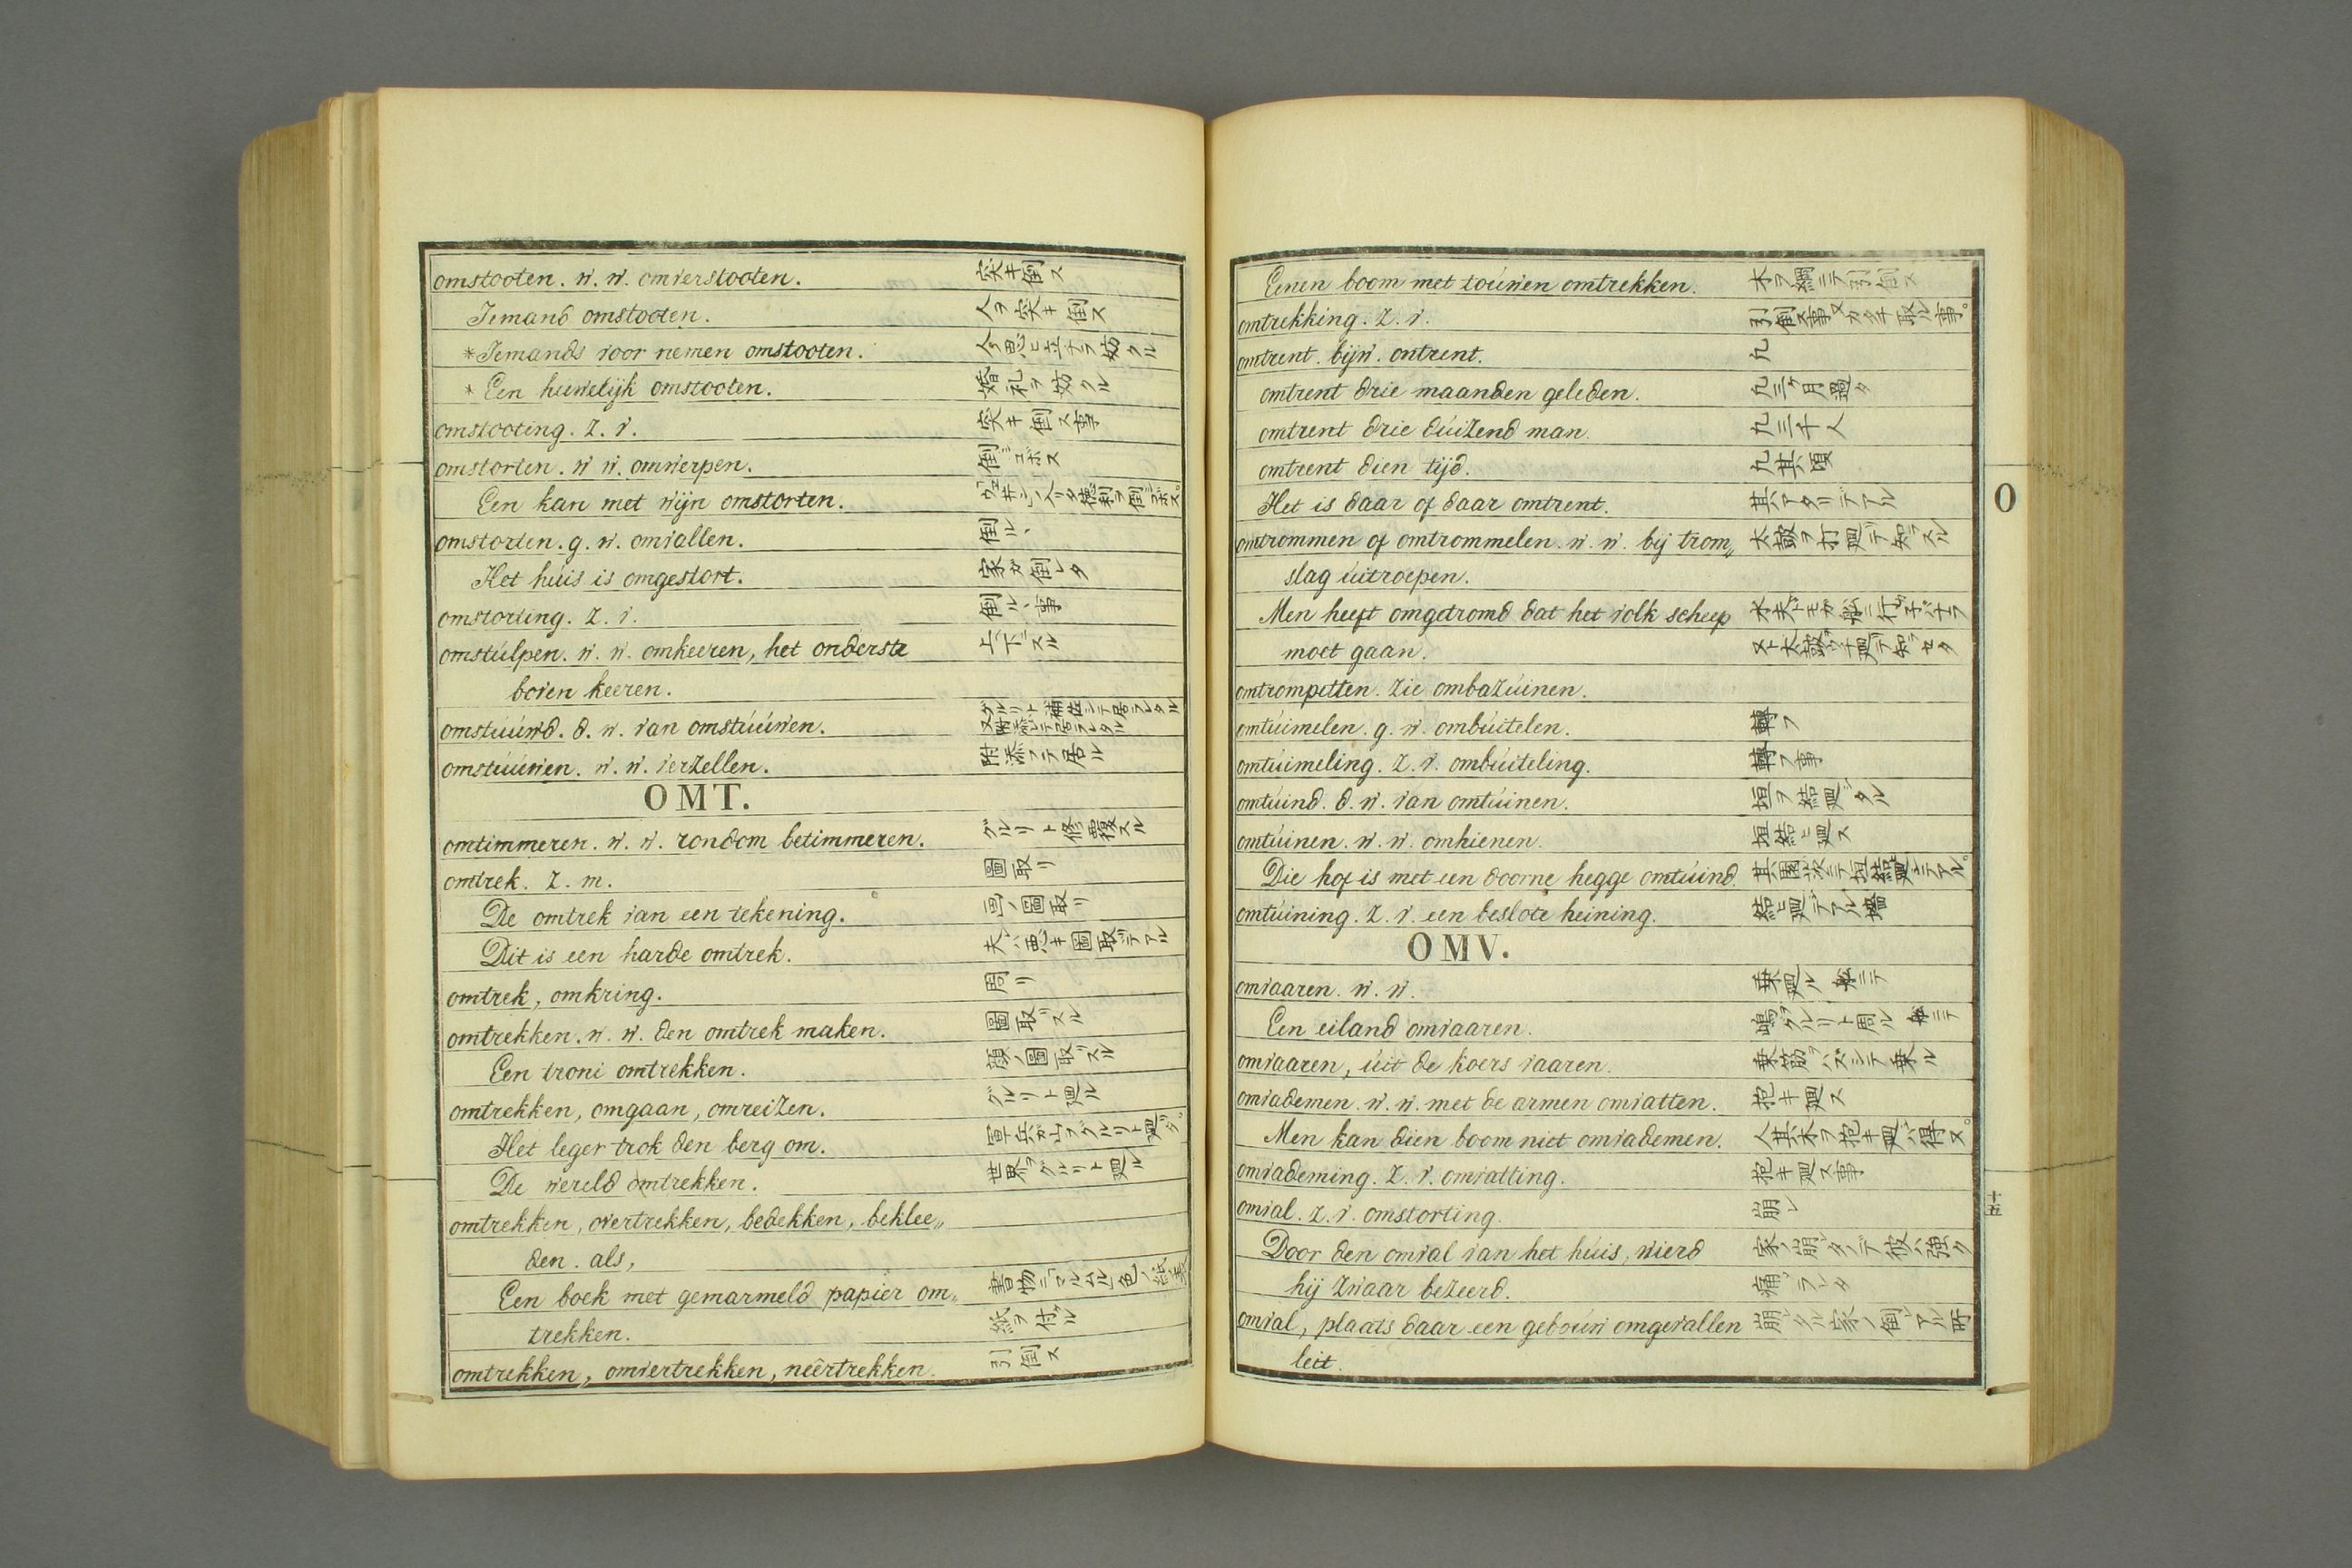 omstooten. w. w. omverstooten. 突キ倒ス
Iemand omstooten. 人ヲ突キ倒ス
*Iemands voor nemen omstooten. 妨クル
* Een huwelijk omstooten. 婚礼ヲ妨クル
omstooting. z. v. 突キ倒ス事
omstorten. w w. omwerpen. 倒
Een kan met wijn omstorten.
omstorten. g. w. omvallen. 倒ル、
Het húis is omgestort. 家ガ倒レタ
omstorting. z. v. 倒ル、事
omstúlpen. w. w. omkeeren, het onderste 上下ニスル
boven keeren.
omstúúwd. d. w. van omstúúwen.
omstúúwen. w. w. verzellen. 附添フテ居ル
OMT.
omtimmeren. w. w. rondom betimmeren. グルリト修覆スル
omtrek. z. m. 圖取リ
De omtrek van een tekening. 画ノ圖取リ
Dit is een harde omtrek. 夫ハ悪キ圖取デアル
omtrek, omkring. 周リ
omtrekken. w. w. den omtrek maken. 圖取スル
Een troni omtrekken. 顔ノ圖取スル
omtrekken, omgaan, omreizen. グルリト廻ル
Het leger trok den berg om. 軍兵ガ山ヲグルリト廻
De wereld omtrekken. 世界ヲグルリト廻ル
omtrekken, overtrekken, bedekken, beklee„
den. als,
Een boek met gemarmeld papier om„ 書物ニ
trekken. 紙ヲ付ル
omtrekken, omvertrekken, neêrtrekken. 引倒ス
Eenen boom met toúwen omtrekken. 木ヲ綱ニテ引倒ス
omtrekking. z. v. 引倒ス事
omtrent. bijw. ontrent. 九
omtrent drie maanden geleden. 九三ヶ月過タ
omtrent drie dúizend man. 九三千人
omtrent dien tijd. 九其頃
Het is daar of daar omtrent. 其アタリデアル
omtrommen of omtrommelen. w. w. bij trom„ 太皷ヲ打廻テ知ラスル
slag úitroepen.
Men heeft omgetromd dat het volk scheep
moet gaan.
omtrompetten. zie ombazúinen.
omtúimelen. g. w. ombúitelen. 轉フ
omtúimeling. z. v. ombúiteling. 轉フ事
omtúind. d. w. van omtúinen. 垣ヲ結廻シタル
omtúinen. w. w. omhienen. 垣結ヒ廻ス
Die hof is met een doorne hegge omtúind.
omtúining. z. v. een beslote heining. 結ヒ廻シテアル墻
OMV.
omvaaren. w. w. 乗廻ル 舩ニテ
Een eiland omvaaren. 嶋ヲグルリト周ル 舩ニテ
omvaaren, úit de koers vaaren. 乗筋ヲハズシテ乗ル
omvademen. w. w. met de armen omvatten. 抱キ廻ス
Men kan dien boom niet omvademen. 人其木ヲ抱キ廻シ得ヌ。
omvademing. z. v. omvatting. 抱キ廻ス事
omval. z. v. omstorting. 崩レ
Door den omval van het húis, wierd 家ノ崩レタノデ彼ハ強ク
hij zwaar bezeerd. 痛
omval, plaats daar een geboúw omgevallen 崩レタル家ノ倒レテアル所
leit.
O
十五